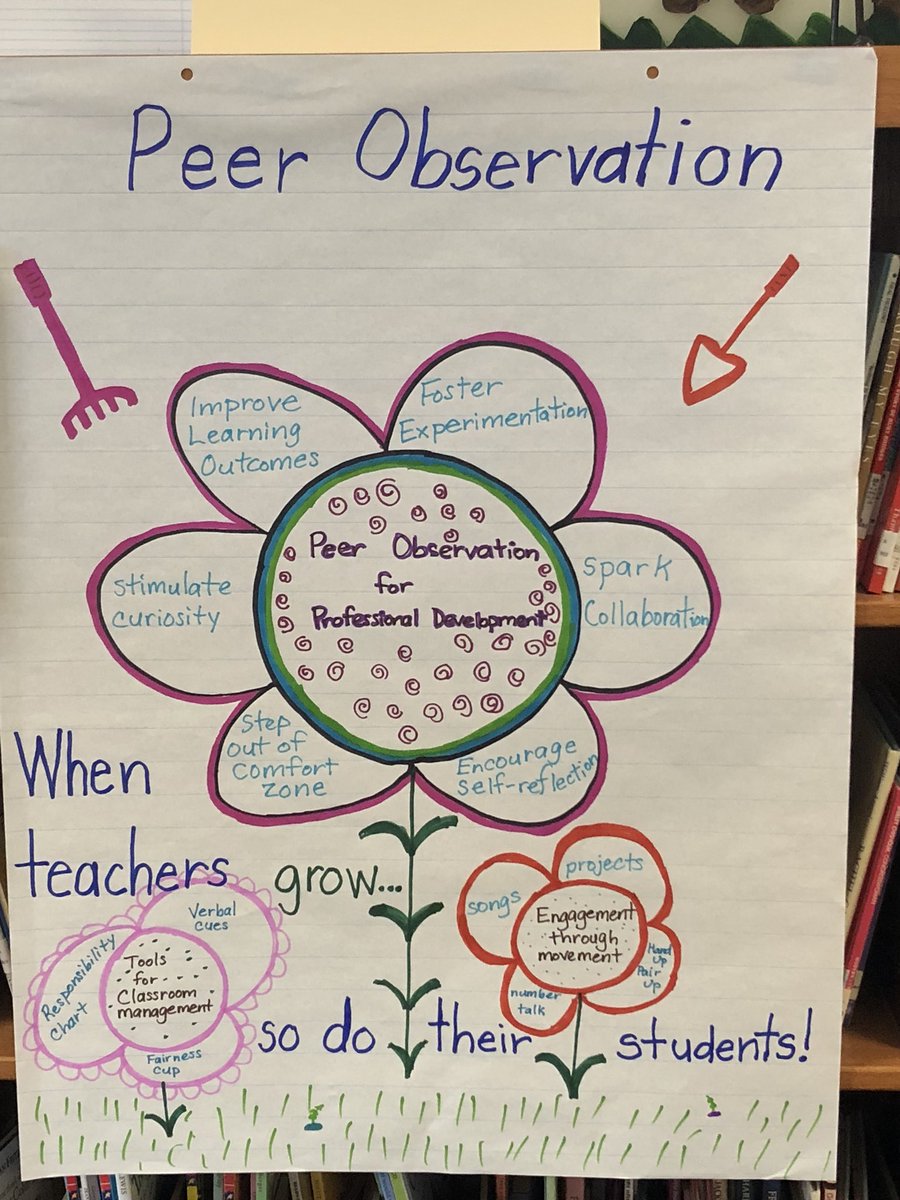 Peer Observation
Improve
Learning
Outcomes
Foster
Experimentation
stimulate
curiosity
Peer Observation
for
Professional Development
Spark
Collaboration
Step
out of
Comfort
zone
Encourage
Self-reflection
When
teachers
grow...
so do their students!
Verbal
cues
Responsibility
Chart
Tools
for
Classroom
management
Fairness
cup
songs
projects
Engagement
through
movement
Hand
Up
Pair
Up
number
talk